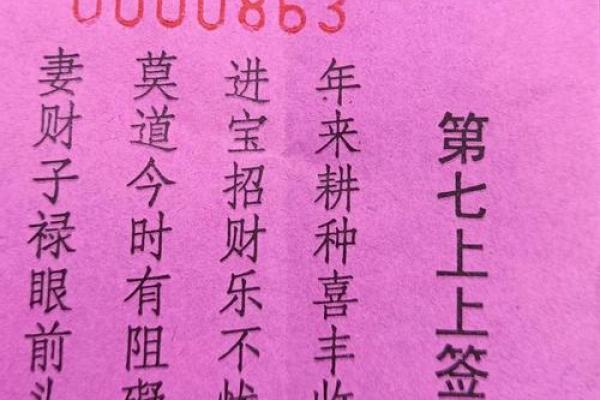 0000863
第七上上签
年来耕种喜丰收
进宝招财乐不忧
莫道今时有阻碍
妻财子禄眼前头